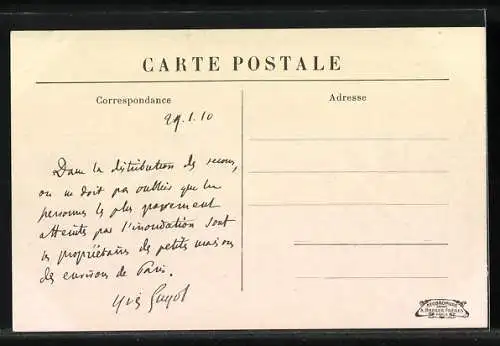 CARTE POSTALE
Correspondance
Adresse
29.1.10
Dans la distribution des secours,
on ne doit pas oublier que les
personnes les plus gravement
atteintes par l'inondation sont
les propriétaires des petites maisons
des environs de Paris.
Yves Guyot